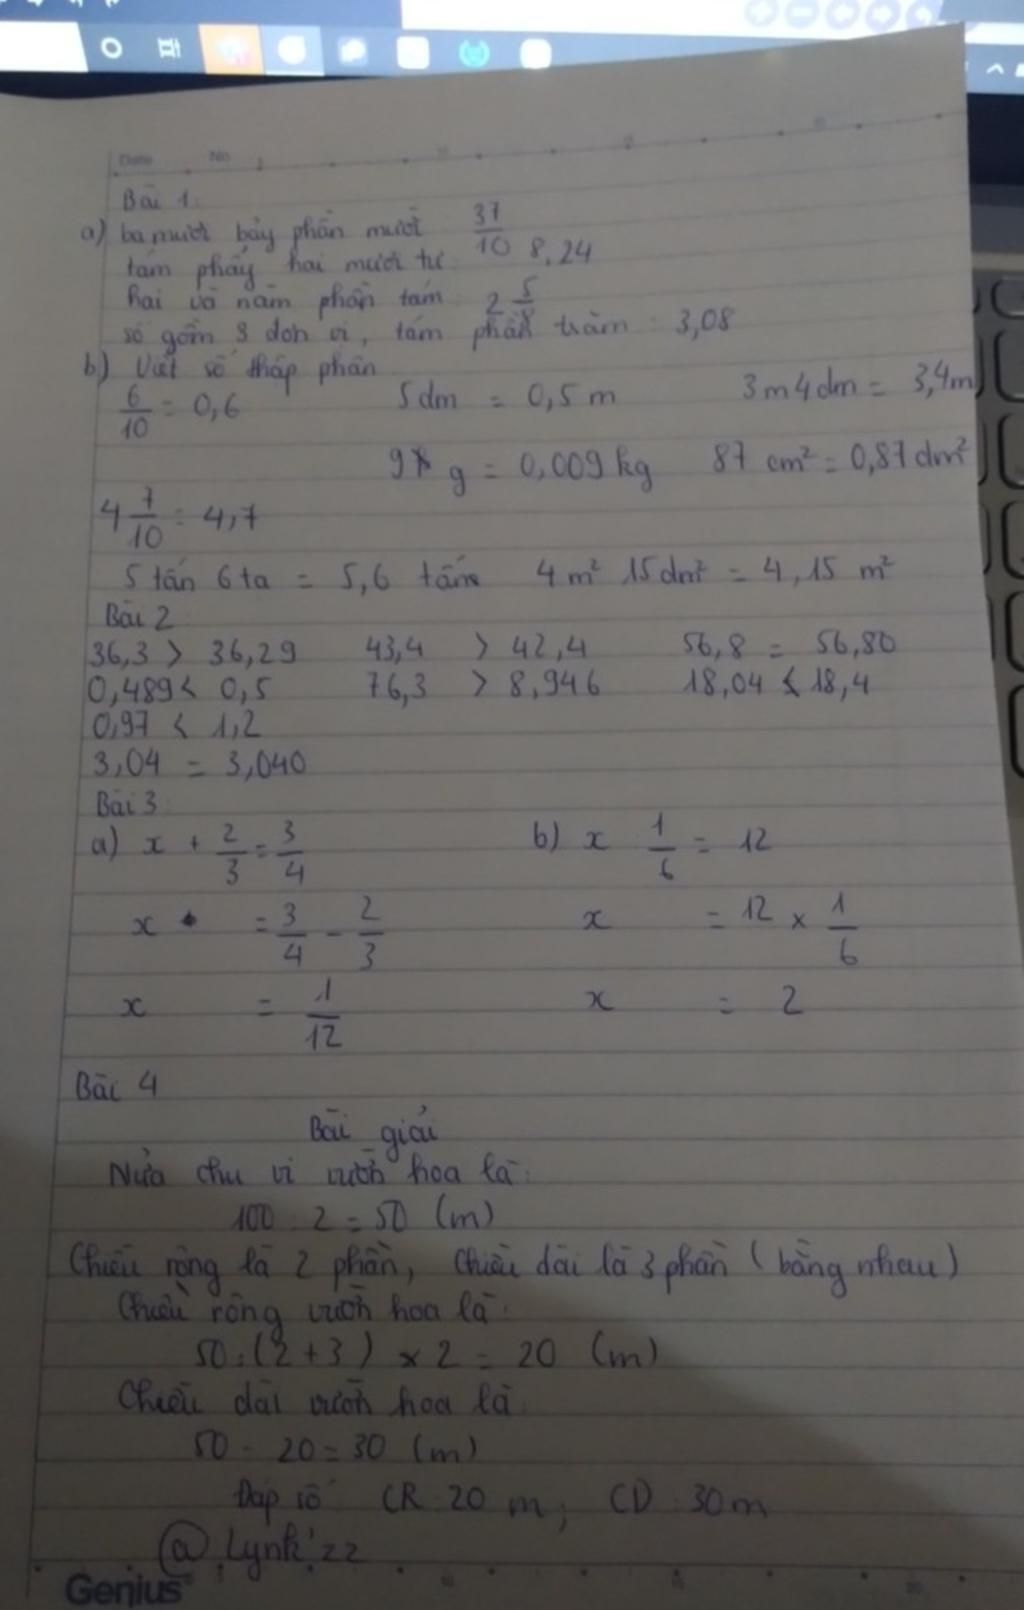 Date No
Bài 1:
a) ba mươi bảy phần mười 37/10
tám phẩy hai mươi tư: 8,24
hai và năm phần tám: 2 5/8
số gồm 3 đơn vị, tám phần trăm: 3,08
b) Viết số thập phân
6/10 = 0,6 5 dm = 0,5 m 3m4dm = 3,4m
9 g = 0,009 kg 87 cm² = 0,87 dm²
4 7/10 = 4,7
5 tấn 6 tạ = 5,6 tấn 4 m² 15 dm² = 4,15 m²
Bài 2
36,3 > 36,29 43,4 > 42,4 56,8 = 56,80
0,489 < 0,5 76,3 > 8,946 18,04 < 18,4
0,97 < 1,2
3,04 = 3,040
Bài 3:
a) x + 2/3 = 3/4 b) x 1/6 = 12
x = 3/4 - 2/3 x = 12 × 1/6
x = 1/12 x = 2
Bài 4
Bài giải
Nửa chu vi vườn hoa là:
100 : 2 = 50 (m)
Chiều rộng là 2 phần, chiều dài là 3 phần (bằng nhau)
Chiều rộng vườn hoa là:
50 : (2+3) × 2 = 20 (m)
Chiều dài vườn hoa là:
50 - 20 = 30 (m)
Đáp số CR: 20 m; CD: 30m
@ Lynk'zz
Genius